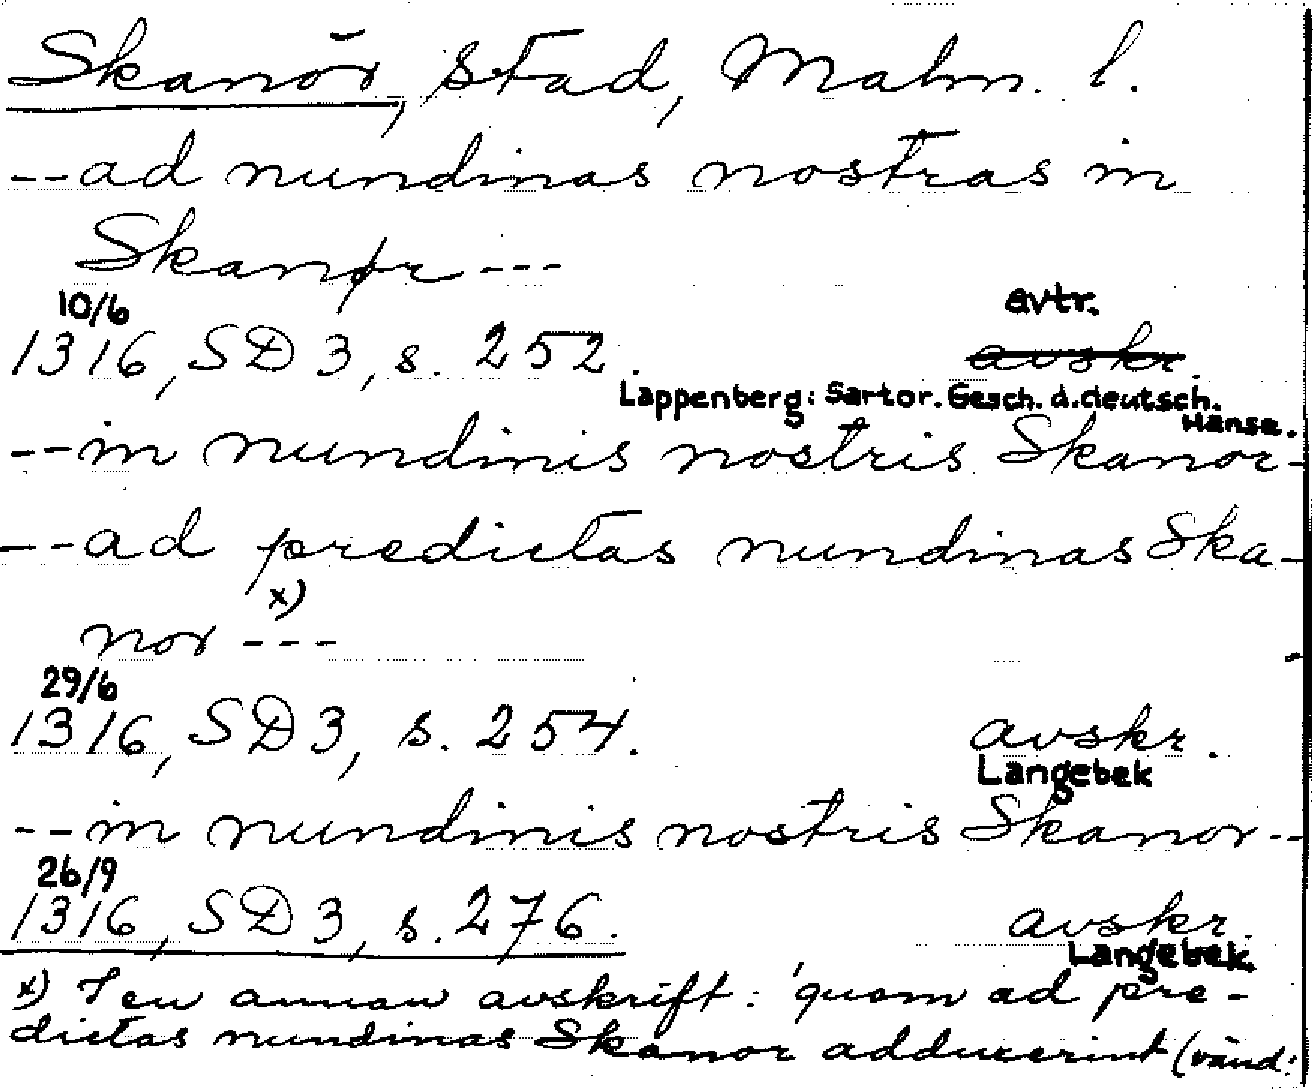 Skanör, stad, Malm. l.
--ad nundinas nostras in
Skanør ---
10/6
avtr.
1316, SD 3, s. 252. avskr.
Lappenberg: Sartor. Gesch. d. deutsch.
Hanse.
--in nundinis nostris Skanor-
--ad predictas nundinas Ska-
x)
nor ---
29/6
1316, SD 3, s. 254. avskr.
Langebek
--in nundinis nostris Skanor--
26/9
1316, SD 3, s. 276. avskr.
Langebek.
x) I en annan avskrift: 'quam ad pre-
dictas nundinas Skanor adduxerint (vänd!